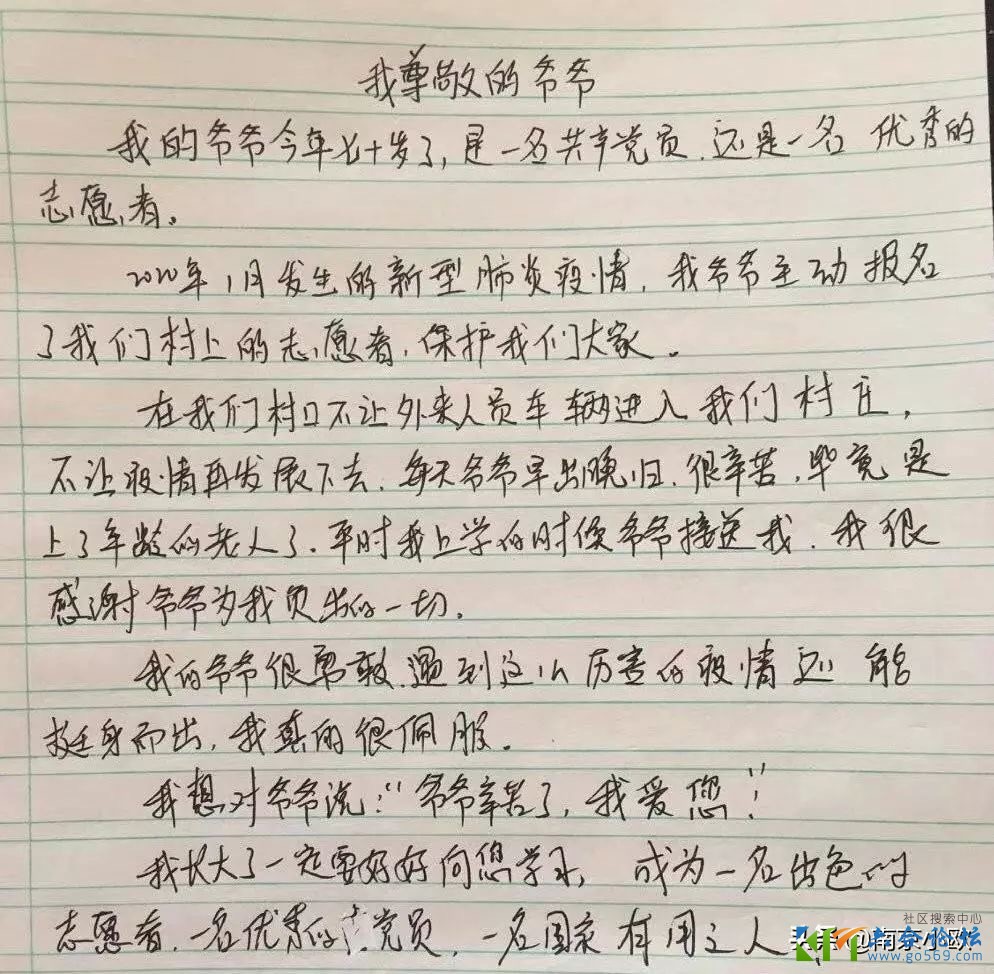 我尊敬的爷爷
我的爷爷今年七十岁了，是一名共产党员，还是一名优秀的
志愿者。
2020年1月发生的新型肺炎疫情，我爷爷主动报名
了我们村上的志愿者，保护我们大家。
在我们村口不让外来人员车辆进入我们村庄，
不让疫情再发展下去，每天爷爷早出晚归，很辛苦，毕竟是
上了年龄的老人了。平时我上学的时候爷爷接送我，我很
感谢爷爷为我付出的一切。
我的爷爷很勇敢，遇到这么厉害的疫情还能
挺身而出，我真的很佩服。
我想对爷爷说：“爷爷辛苦了，我爱您！”
我长大了一定要好好向您学习，成为一名出色的
志愿者，一名优秀的党员，一名国家有用之人
社区搜索中心
@南京小欧
论坛
www.go569.com